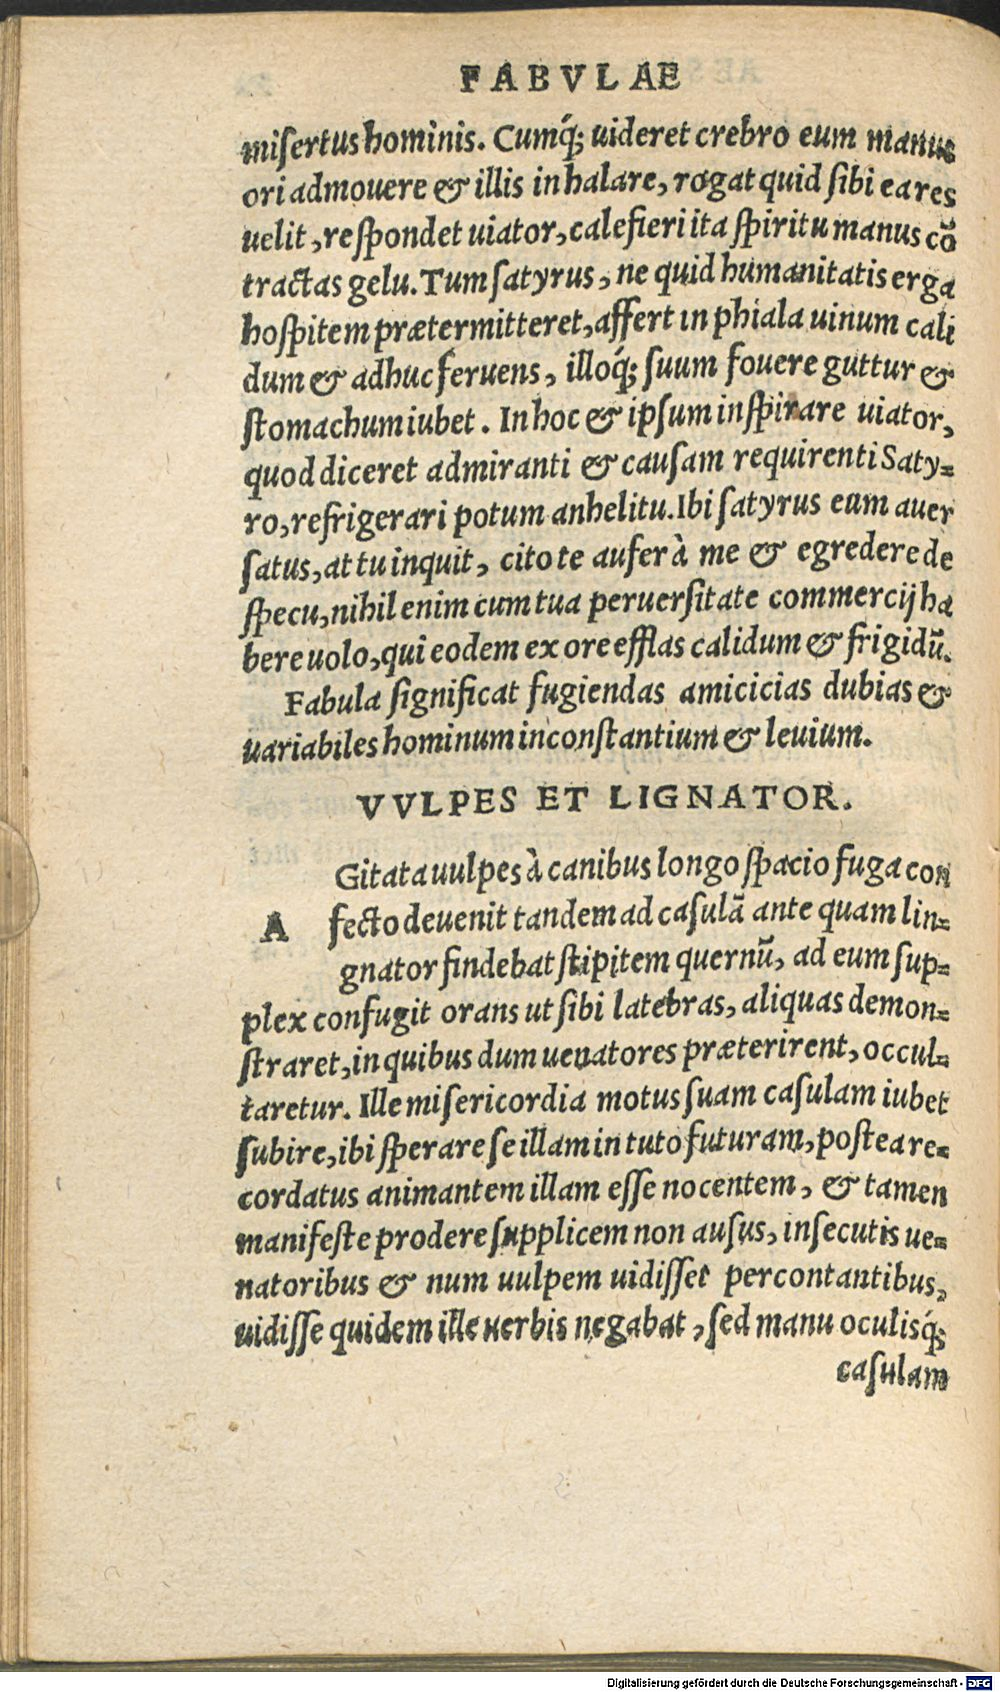 FABVLAE
miſertus hominis. Cumq́; uideret crebro eum manus
ori admouere & illis inhalare, rogat quid ſibi ea res
uelit, reſpondet uiator, calefieri ita ſpiritu manus cõ
tractas gelu. Tum ſatyrus, ne quid humanitatis erga
hoſpitem prætermitteret, affert in phiala uinum cali
dum & adhuc feruens, illoq́; ſuum fouere guttur &
ſtomachum iubet. In hoc & ipſum inſpirare uiator,
quod diceret admiranti & cauſam requirenti Saty=
ro, refrigerari potum anhelitu. Ibi ſatyrus eum auer
ſatus, at tu inquit, cito te aufer à me & egredere de
ſpecu, nihil enim cum tua peruerſitate commercij ha
bere uolo, qui eodem ex ore efflas calidum & frigidũ.
Fabula ſignificat fugiendas amicicias dubias &
uariabiles hominum inconſtantium & leuium.
VVLPES ET LIGNATOR.
AGitata uulpes à canibus longo ſpacio fuga con
fecto deuenit tandem ad caſulã ante quam lin=
gnator findebat ſtipitem quernũ, ad eum ſup=
plex confugit orans ut ſibi latebras, aliquas demon=
ſtraret, in quibus dum uenatores præterirent, occul=
taretur. Ille miſericordia motus ſuam caſulam iubet
ſubire, ibi ſperare ſe illam in tuto futuram, poſtea re=
cordatus animantem illam eſſe nocentem, & tamen
manifeſte prodere ſupplicem non auſus, inſecutis ue=
natoribus & num uulpem uidiſſet percontantibus,
uidiſſe quidem ille uerbis negabat, ſed manu oculisq́;
caſulam
Digitalisierung gefördert durch die Deutsche Forschungsgemeinschaft - DFG